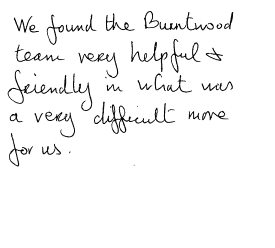 We found the Burntwood
team very helpful &
friendly in what was
a very difficult move
for us.